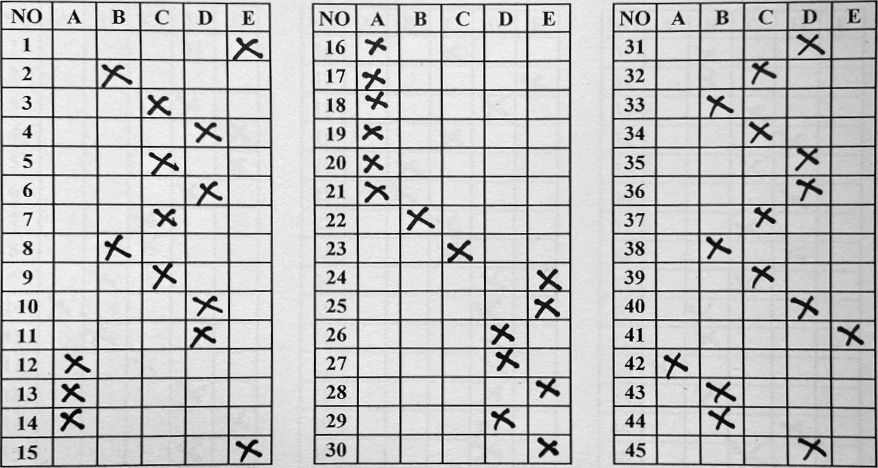 NO A B C D E
1 X
2 X
3 X
4 X
5 X
6 X
7 X
8 X
9 X
10 X
11 X
12 X
13 X
14 X
15 X
NO A B C D E
16 X
17 X
18 X
19 X
20 X
21 X
22 X
23 X
24 X
25 X
26 X
27 X
28 X
29 X
30 X
NO A B C D E
31 X
32 X
33 X
34 X
35 X
36 X
37 X
38 X
39 X
40 X
41 X
42 X
43 X
44 X
45 X